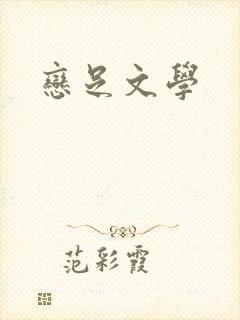 戀足文學
范彩霞